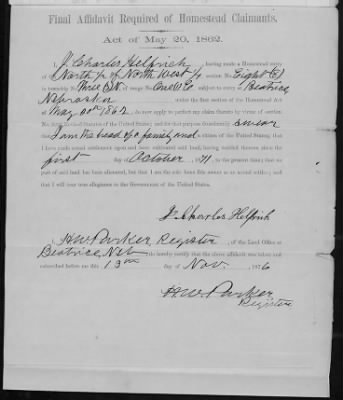 Final Affidavit Required of Homestead Claimants.
Act of May 20, 1862.
I, J. Charles Helfrich, having made a Homestead entry
of North ½ of North West ¼ section No. Eight (8)
in township No. Three (3) N. of range No. One (1) E., subject to entry at Beatrice
Nebraska under the first section of the Homestead Act
of May 20th 1862, do now apply to perfect my claim thereto by virtue of section
No. of the Revised Statutes of the United States; and for that purpose do solemnly swear
that I am the head of a family and a citizen of the United States; that I
have made actual settlement upon and have cultivated said land, having resided thereon since the
first day of October, 1871, to the present time; that no
part of said land has been alienated, but that I am the sole bona fide owner as an actual settler; and
that I will bear true allegiance to the Government of the United States.
J. Charles Helfrich
I, H.W. Parker Register, of the Land Office at
Beatrice Neb do hereby certify that the above affidavit was taken and
subscribed before me this 13th day of Nov. 1876
H.W. Parker
Register